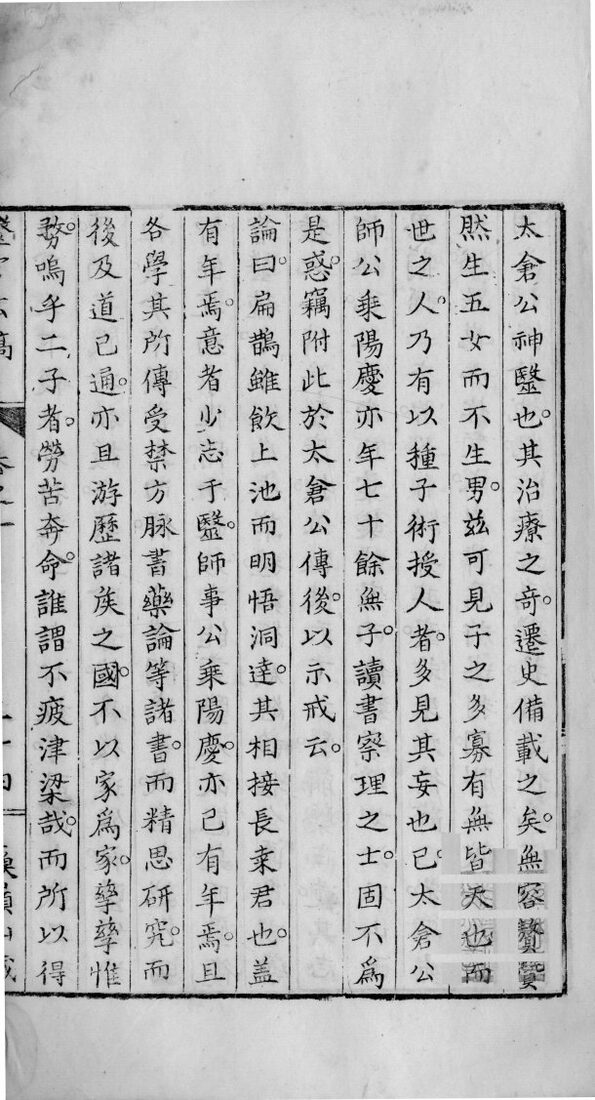 太倉公神醫也。其治療之奇。遷史備載之矣。無容贅
然生五女而不生男。茲可見子之多寡有無皆天也而
世之人。乃有以種子術授人者。多見其妄也已。太倉公
師公乘陽慶亦年七十餘無子。讀書察理之士。固不爲
是惑。竊附此於太倉公傳後。以示戒云。
論曰。扁鵲雖飮上池而明悟洞達。其相接長桒君也。盖
有年焉。意者少志于醫。師事公乘陽慶。亦已有年焉。且
各學其所傳受禁方脉書藥論等諸書。而精思研究。而
後及道已通。亦且游歷諸侯之國。不以家爲家。孳孳惟
務。嗚乎二子者。勞苦奔命。誰謂不疲津梁哉。而所以得
卷之一
二十四